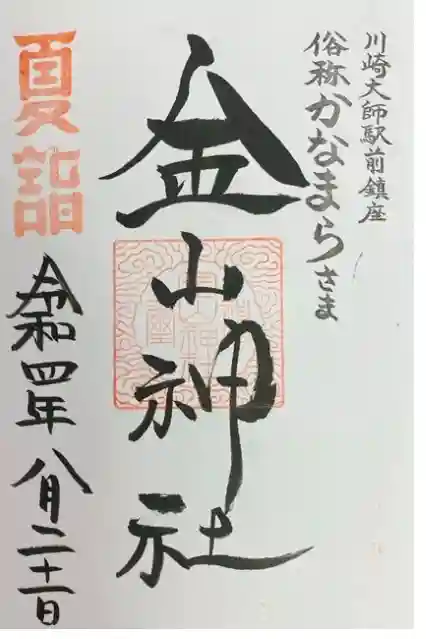 川崎大師駅前鎮座
俗称かなまらさま
金山神社
夏詣
令和四年八月二十一日